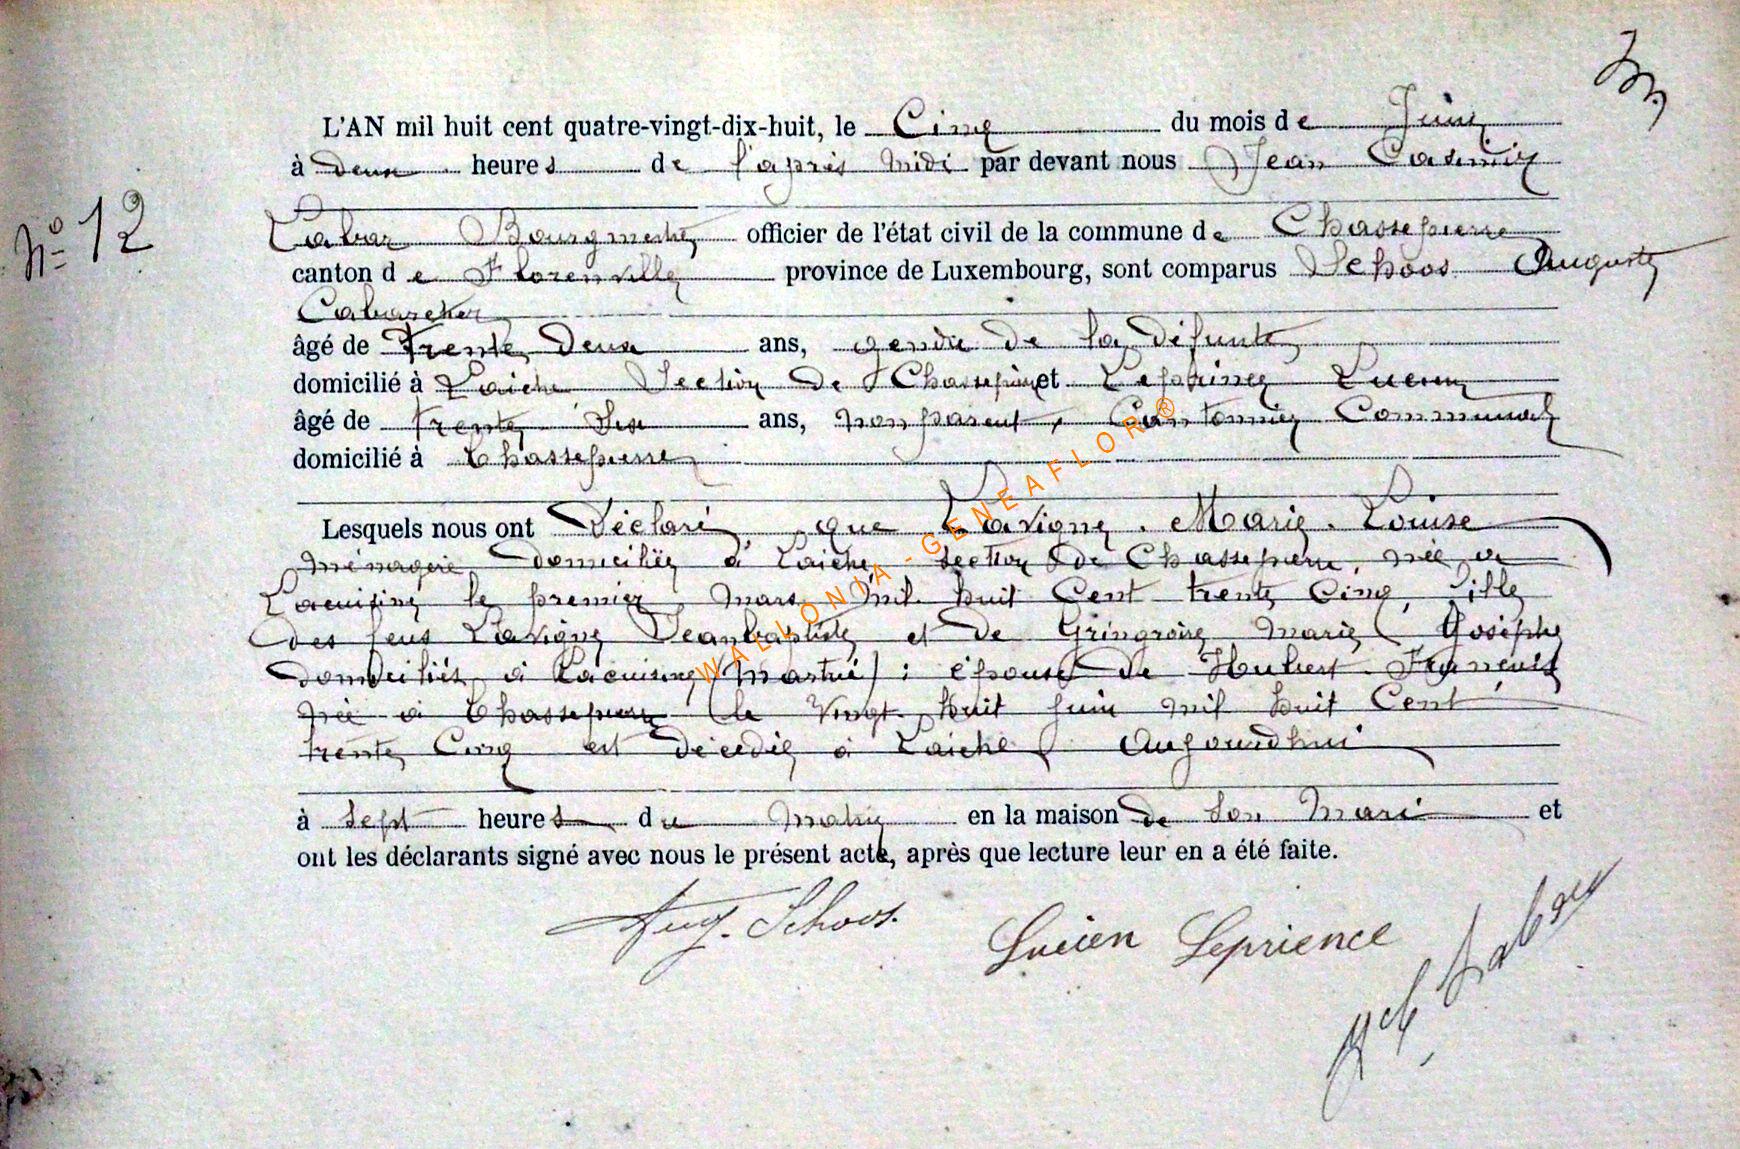 L'AN mil huit cent quatre-vingt-dix-huit, le Cinq du mois de Juin
à deux heures de l'après midi par devant nous Jean Casimir
N° 12
Labar Bourgmestre officier de l'état civil de la commune de Chassepierre
canton de Florenville province de Luxembourg, sont comparus Schoos Auguste
Cabaretier
âgé de trente deux ans, gendre de la défunte
domicilié à Laiche Section de Chassepierre et Leprince Lucien
âgé de trente Six ans, non parent, Cantonnier Communal
domicilié à Chassepierre
Lesquels nous ont Déclaré que Lavigne Marie Louise
ménagère domiciliée à Laiche section de Chassepierre, née a
Lacuisine le premier mars mil huit Cent trente Cinq, fille
des feus Lavigne Jeanbaptiste et de Gringroire Marie Josèphe
domiciliés à Lacuisine (Martué) : épouse de Hubert François
née à Chassepierre le Vingt huit juin mil huit Cent
trente Cinq est décédée à Laiche Aujourdhui
à sept heures du matin en la maison de son Mari et
ont les déclarants signé avec nous le présent acte, après que lecture leur en a été faite.
Aug. Schoos.
Lucien Leprience
WALLONIA - GENEAFLOR®